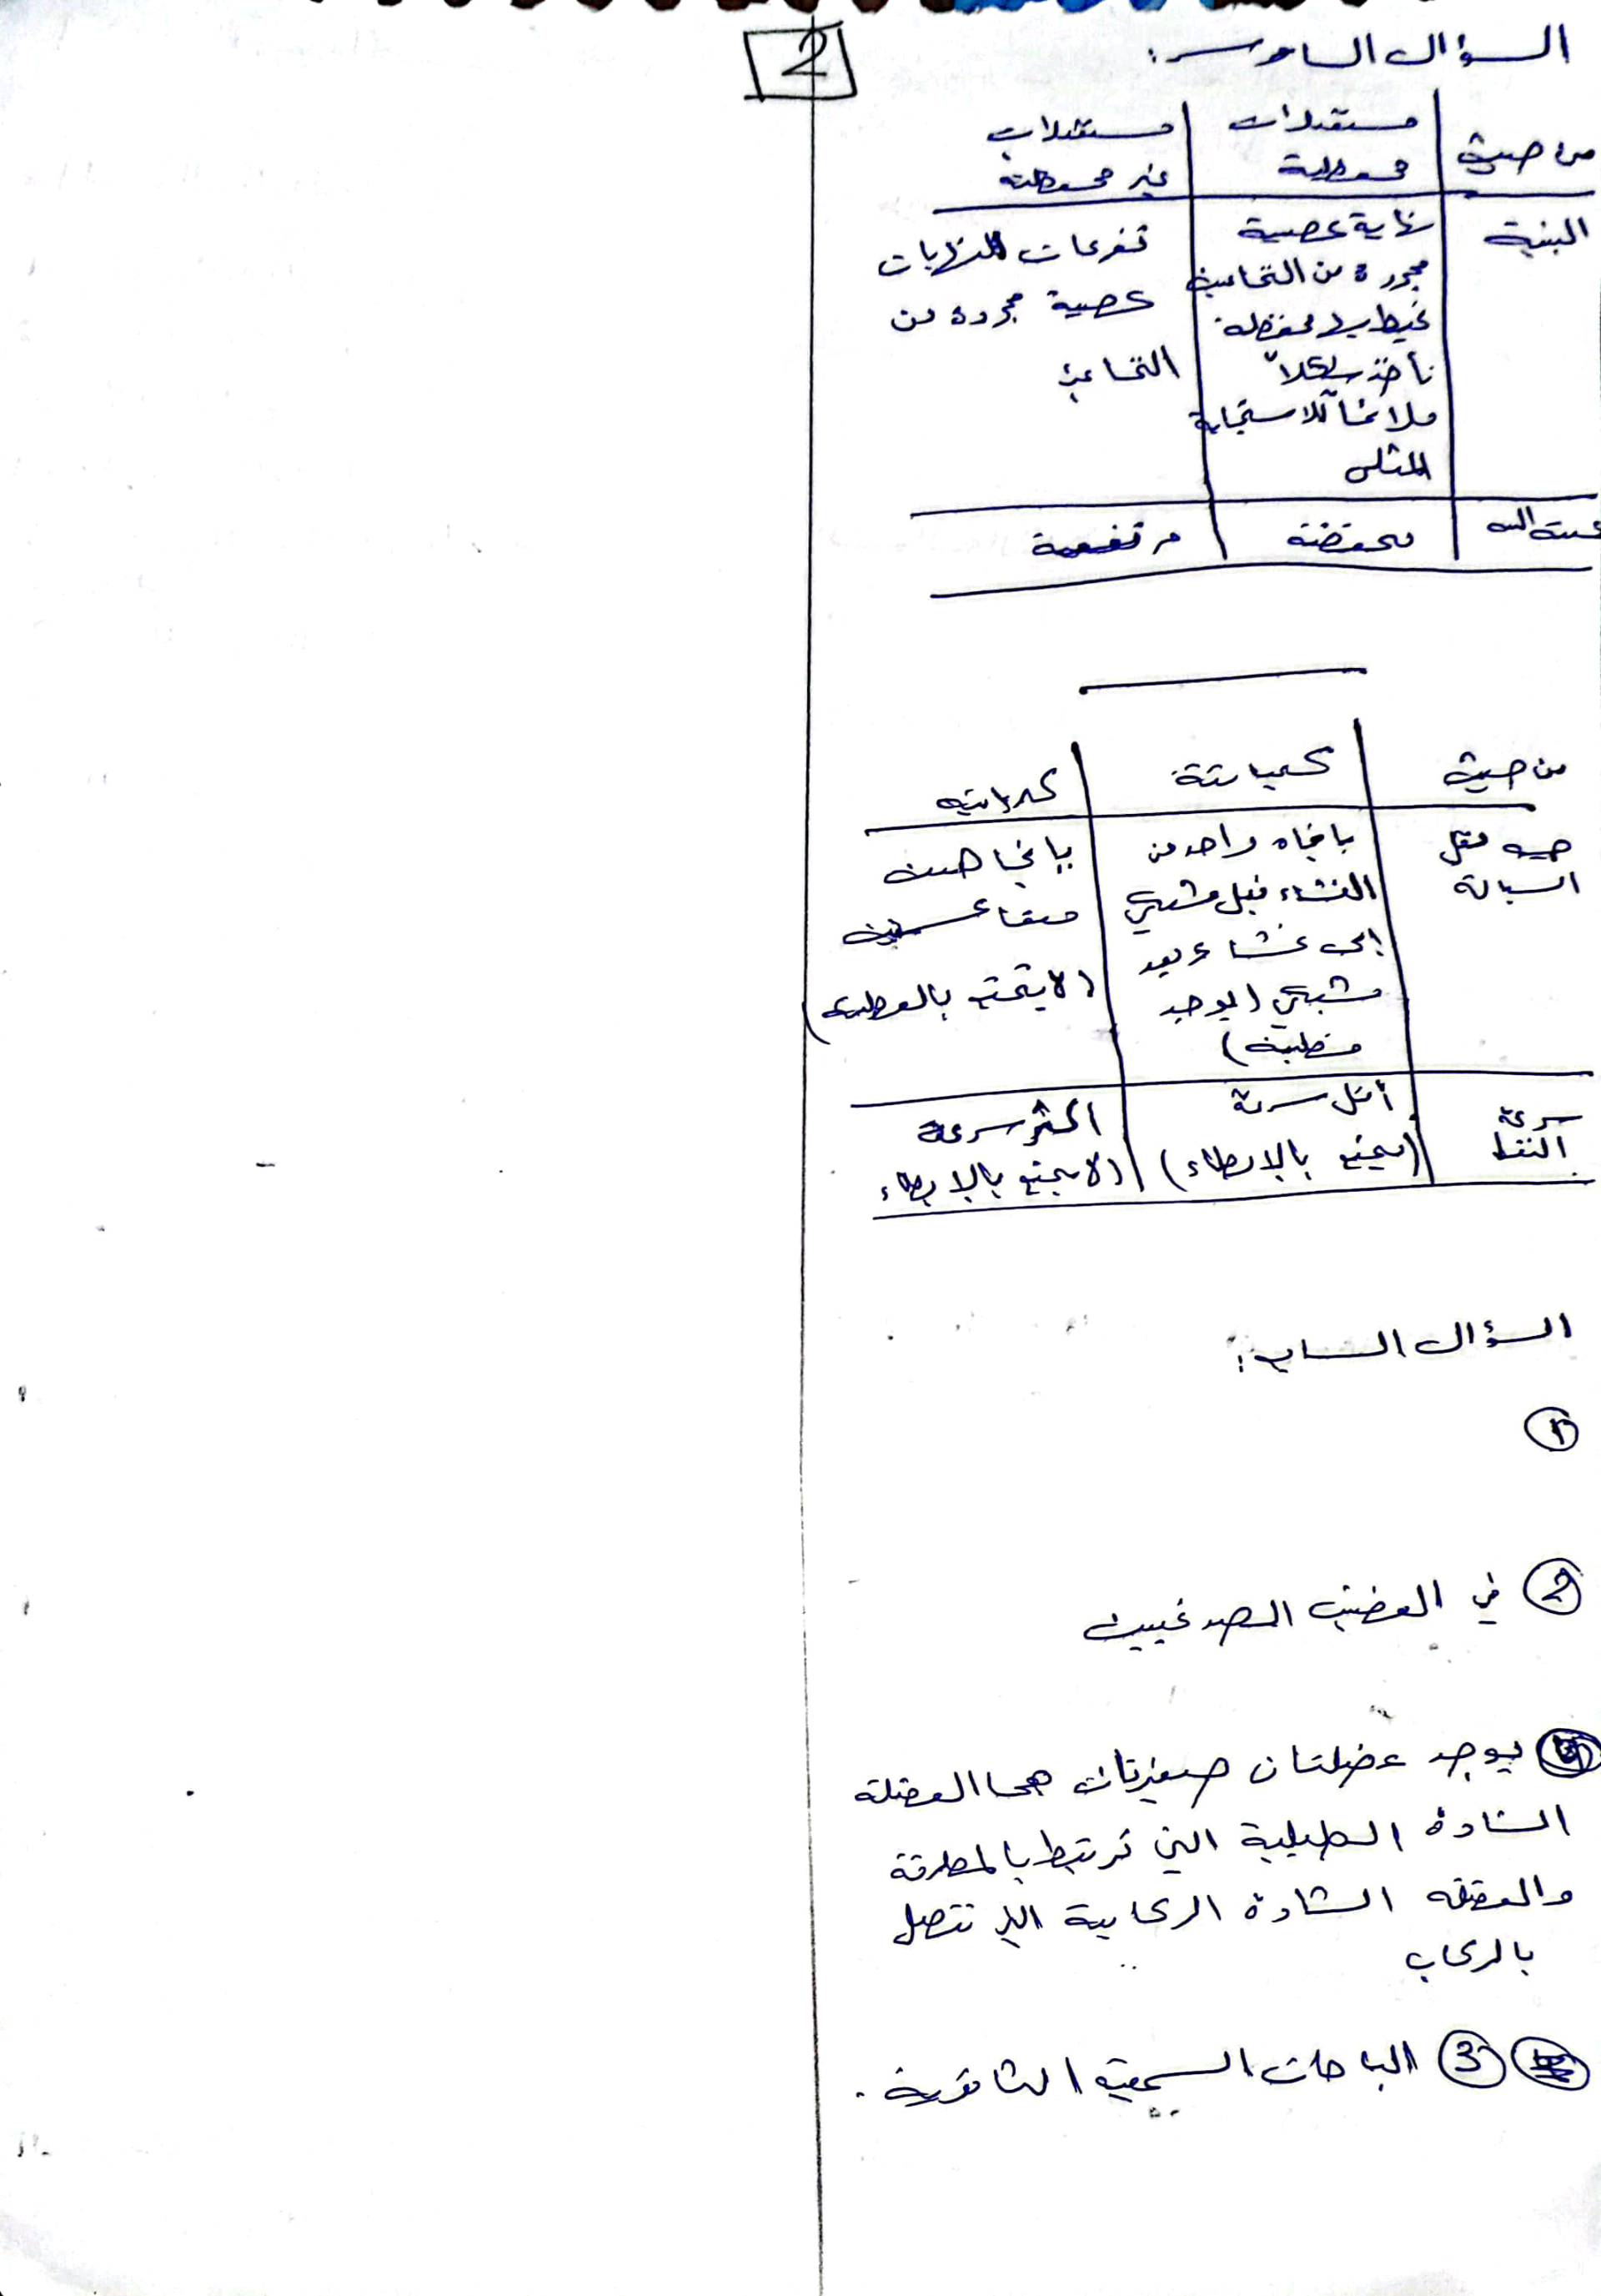 2
السؤال السادس:
من حيث
مستقبلات
محفظية
مستقبلات
غير محفظية
البنية
نهاية عصبية
مجردة من النخاعين
تحيط بها محفظة
تأخذ شكلاً
ملائماً للاستجابة
المثلى
تفرعات لنهايات
عصبية مجردة من
النخاعين
عتبة التنبيه
منخفضة
مرتفعة
من حيث
كيميائية
كهربائية
جهة نقل
السيالة
باتجاه واحد من
الغشاء قبل مشبكي
إلى غشاء بعد
مشبكي (يوجد
قطبية)
باتجاهين
متعاكسين
(لا يتمتع بالقطبية)
سرعة
النقل
أقل سرعة
(يتمتع بالإبطاء)
أكثر سرعة
(لا يتمتع بالإبطاء
السؤال السابع:
1
2 في الفصين الصدغيين
يوجد عضلتان صغيرتان هما العضلة
الشادة الطبلية التي ترتبط بالمطرقة
والعضلة الشادة الركابية التي تتصل
بالركاب
3 الباحات السمعية الثانوية.